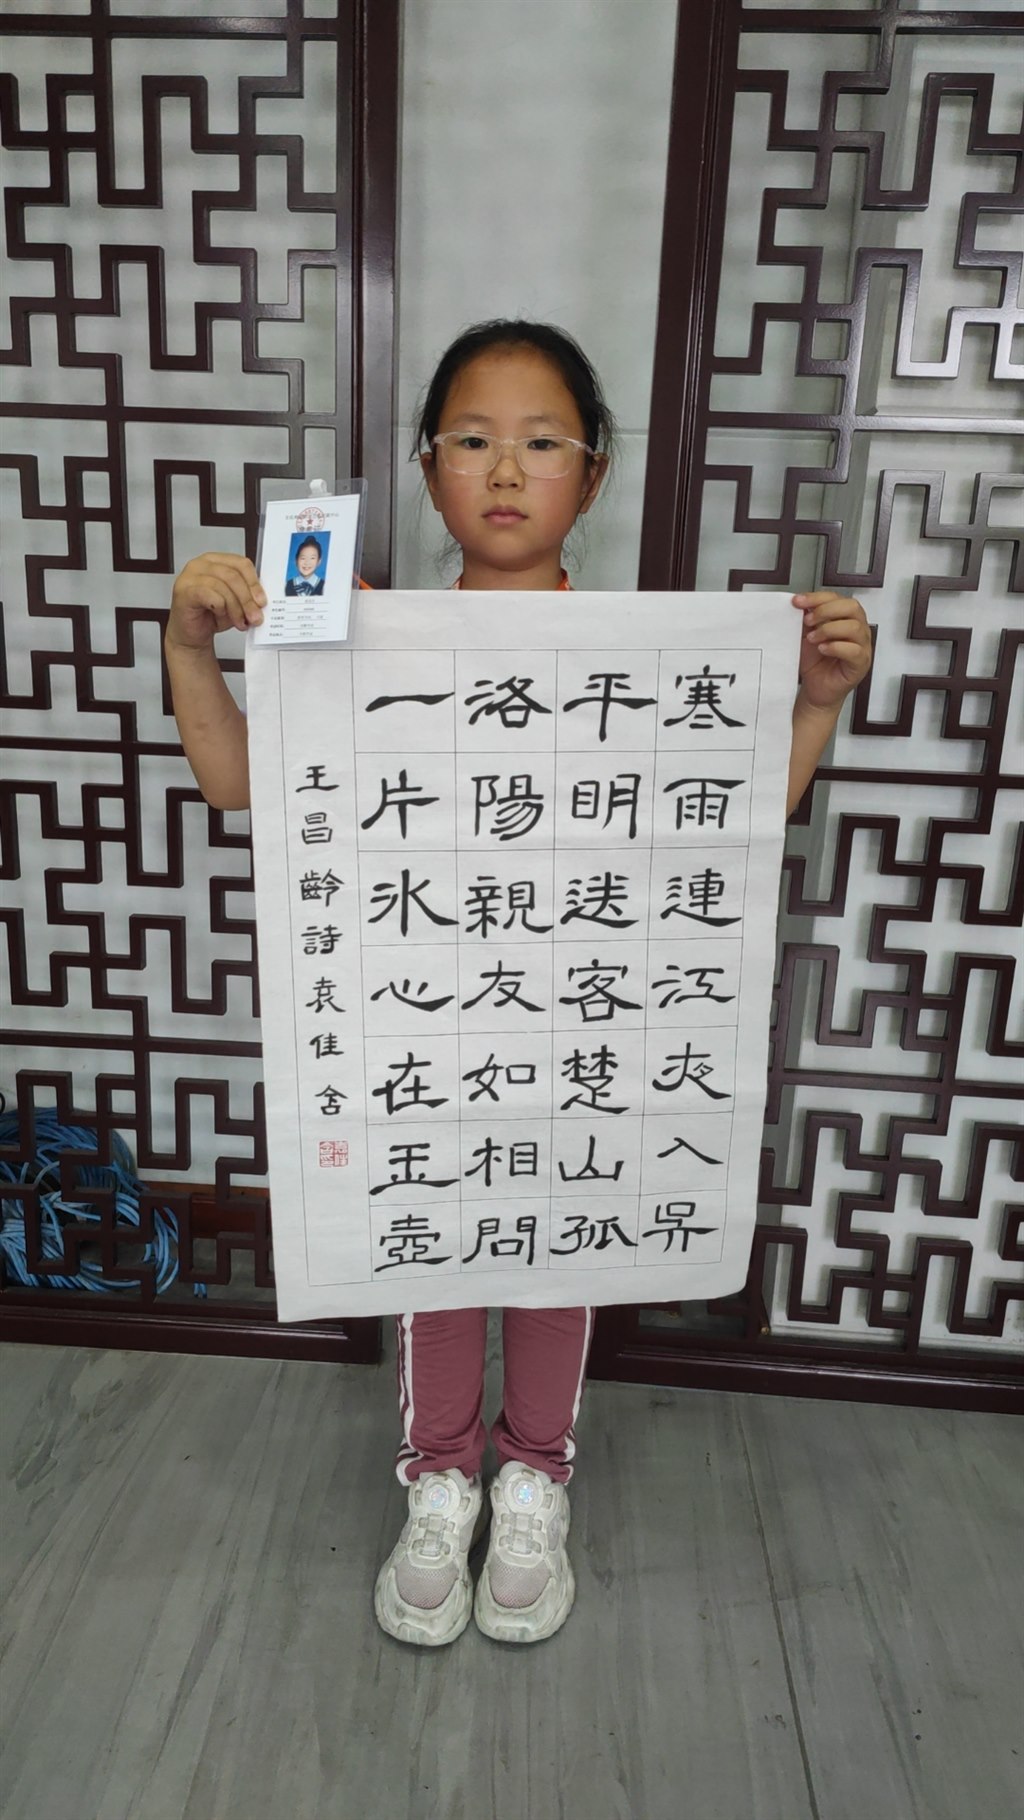 寒雨連江夜入吳
平明送客楚山孤
洛陽親友如相問
一片冰心在玉壺
王昌齡詩袁佳含